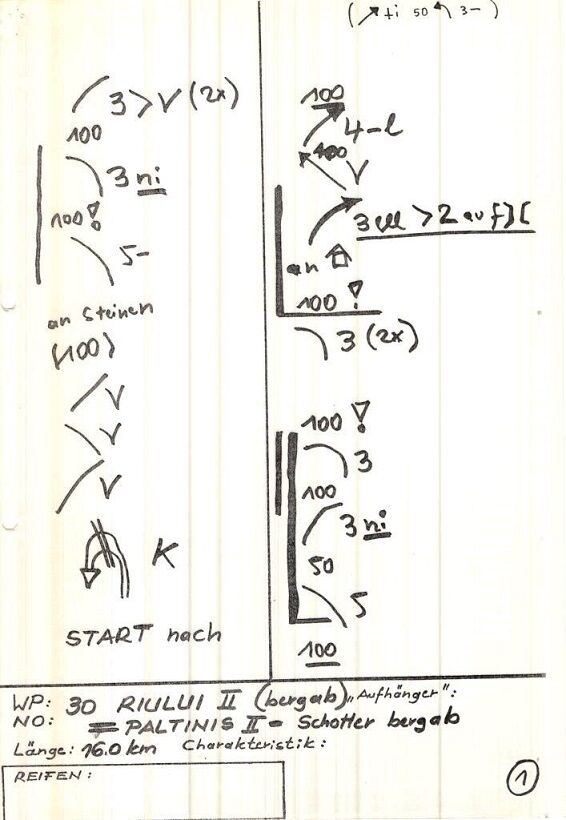 ( ti 50 3- )
3 > V (2x)
100
3 ni
100 !
5-
an Steinen
(100)
V
V
V
K
START nach
100
4-l
100
V
3 > 2 auf ][
an
100 !
3 (2x)
100 !
3
100
3 ni
50
5
100
WP: 30 RIULUI II (bergab) „Aufhänger":
NO: = PALTINIS II - Schotter bergab
Länge: 16.0 km Charakteristik:
REIFEN:
1